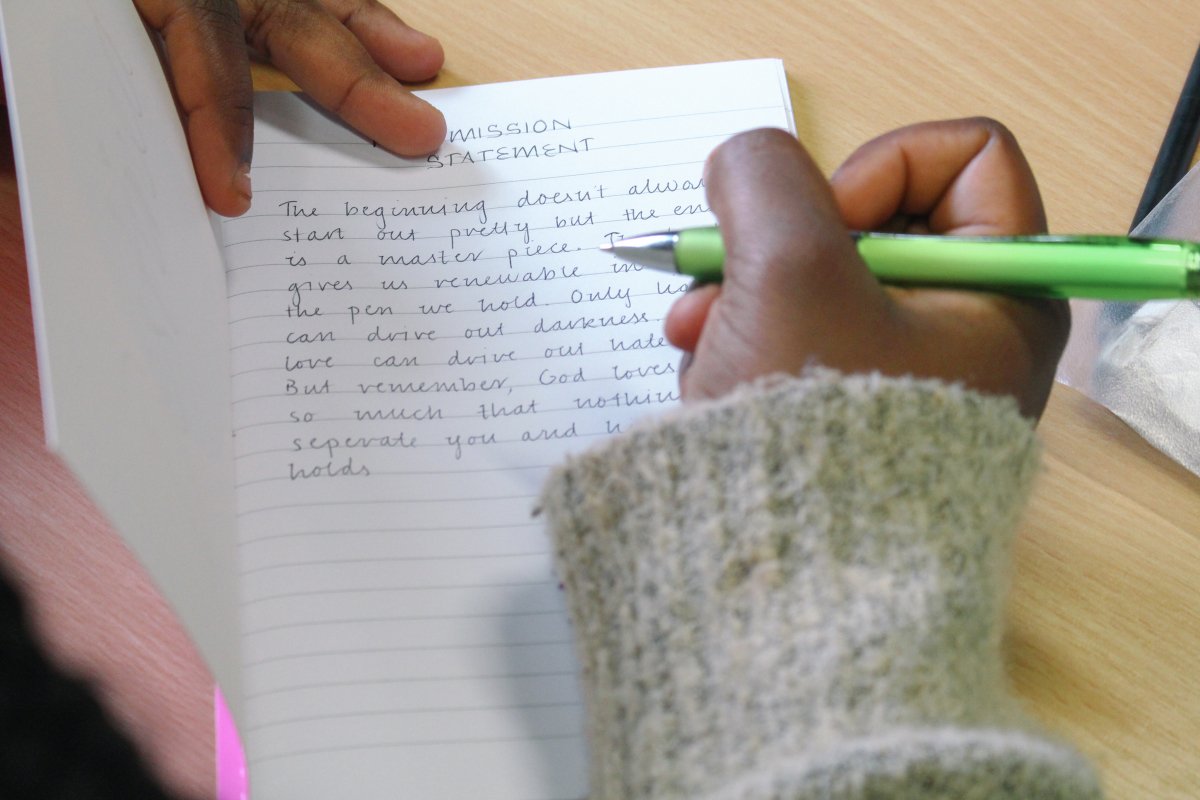 MISSION
STATEMENT
The beginning doesn't
start out pretty but the
is a master piece.
gives us renewable
the pen we hold. Only
can drive out darkness.
love can drive out hate
But remember, God loves
so much that
seperate you and
holds